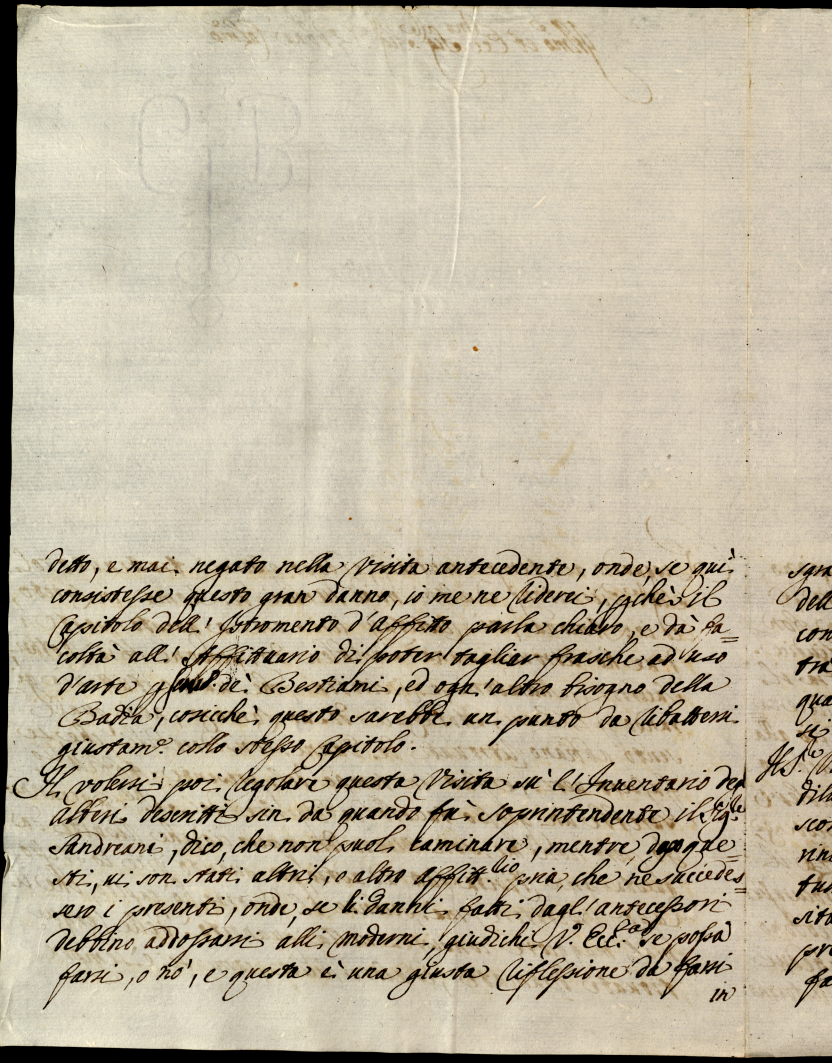 detto, e mai negato nella Visita antecedente, onde, se quì
consistesse questo gran danno, io me ne riderei, pche il
Capitolo dell' Istromento d'Affitto parla chiaro, e dà fa=
coltà all' Affittuario di poter tagliar frasche ad uso
d'arte de' Bestiami, ed ogn' altro bisogno della
Badia, cosicchè questo sarebbe un punto da ribattersi
giustam.e collo stesso Capitolo.
Il volersi poi regolare questa Visita sù l' Inventario degl
alberi descritti sin da quando fù soprintendente il Sig.re
Sandreani, dico, che non puol caminare, mentre dopo que=
sti, ui son stati altri, o altro affitt.rio pria, che ne succedes=
sero i presenti, onde, se li danni fatti dagl' antecessori
debbino addossarsi alli moderni, giudichi V. Ecc.a se possa
farsi, o nò, e questa è una giusta riflessione da farsi
in
sgra
dell
con
tra
qua
si
Il S.re
dila
scor
rin
tus
sita
pre
fa